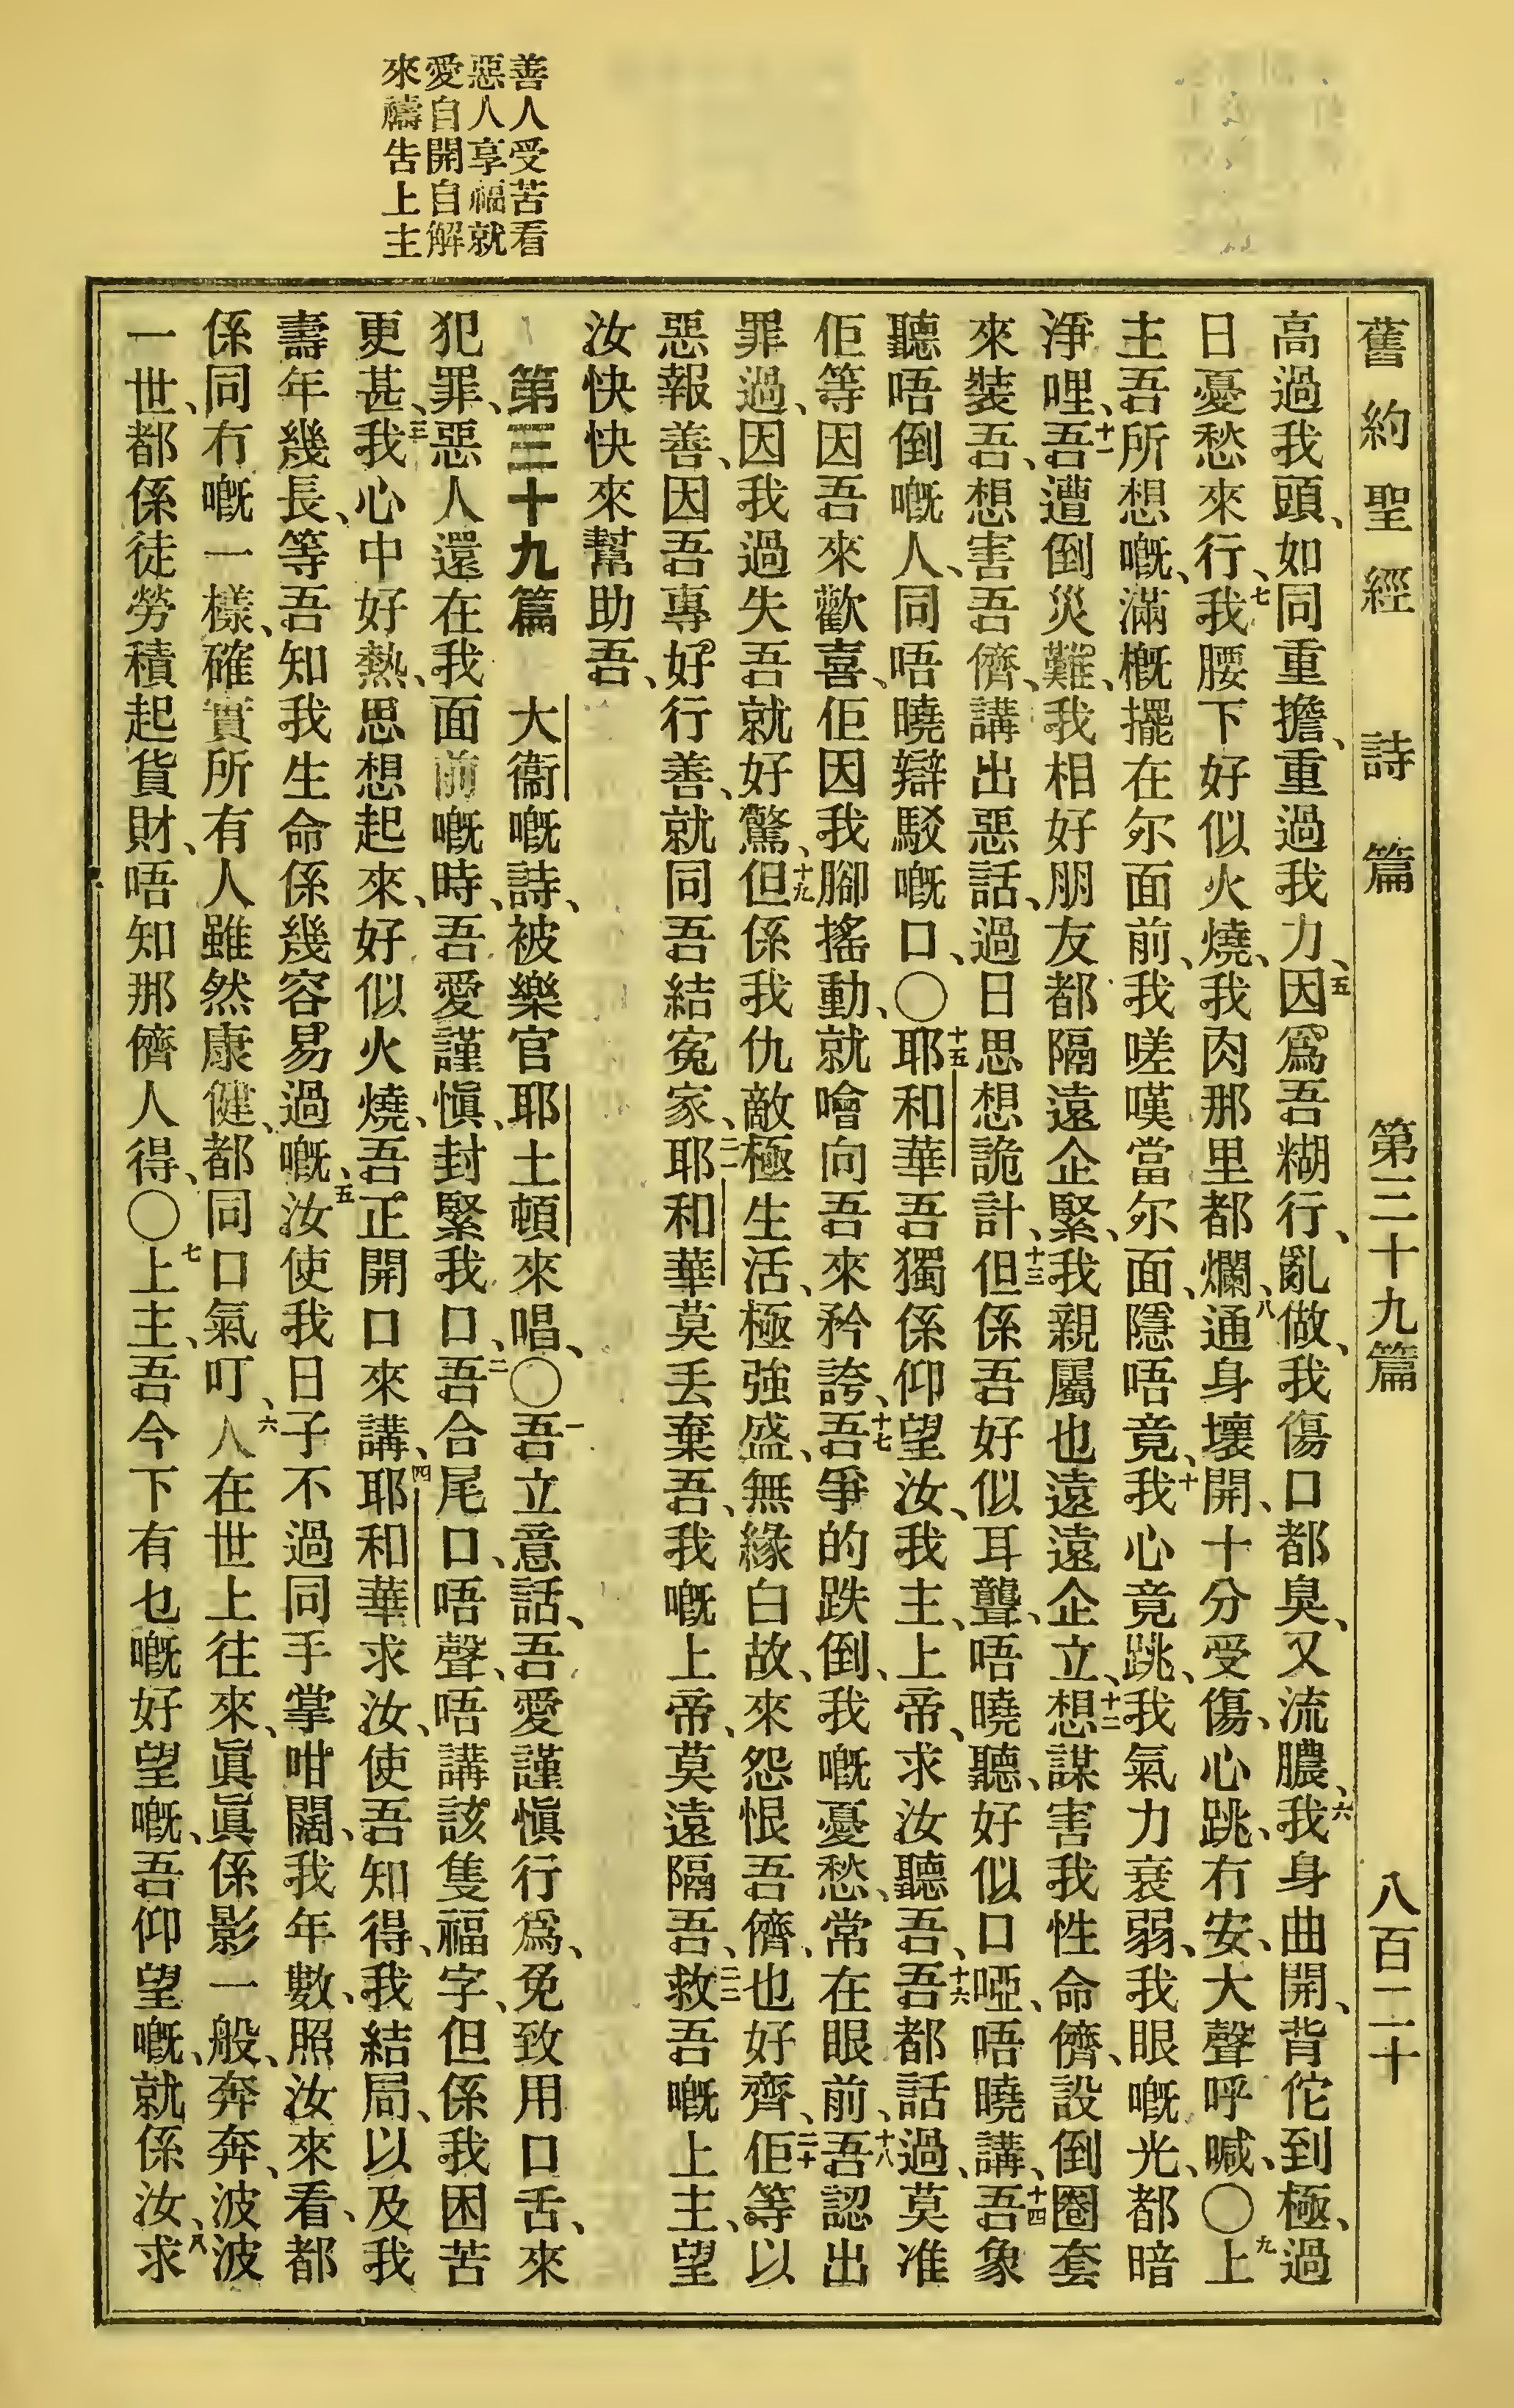 舊約聖經 詩篇 第三十九篇 八百二十
高過我頭、如同重擔、重過我力、五因爲吾糊行、亂做、我傷口都臭、又流膿、六我身曲開、背佗到極、過
日憂愁來行、七我腰下好似火燒、我肉那里都爛、八通身壞開、十分受傷、心跳、冇安、大聲呼喊、〇九上
主吾所想嘅、滿概擺在尔面前、我嗟嘆當尔面、隱唔竟、十我心竟跳、我氣力衰弱、我眼嘅光、都暗
淨哩、十一吾遭倒災難、我相好朋友都隔遠企緊、我親屬也遠遠企立、十二想謀害我性命儕、設倒圈套
來裝吾、想害吾儕、講出惡話、過日思想詭計、十三但係吾好似耳聾、唔曉聽、好似口啞、唔曉講、十四吾象
聽唔倒嘅人、同唔曉辯駁嘅口、〇十五耶和華吾獨係仰望汝、我主、上帝、求汝聽吾、十六吾都話過、莫准
佢等因吾來歡喜、佢因我腳搖動、就噲向吾來矜誇、十七吾爭的跌倒、我嘅憂愁、常在眼前、十八吾認出
罪過、因我過失吾就好驚、十九但係我仇敵極生活、極強盛、無緣白故、來怨恨吾儕、也好齊、二十佢等以
惡報善、因吾專好行善、就同吾結寃家、二一耶和華莫丢棄吾、我嘅上帝、莫遠隔吾、二二救吾嘅上主、望
汝快快來幫助吾、
善人受苦看
惡人享福就
愛自開自解
來禱告上主
第三十九篇 大衞嘅詩、被樂官耶土頓來唱、〇一吾立意話、吾愛謹愼行爲、免致用口舌、來
犯罪、惡人還在我面前嘅時、吾愛謹愼、封緊我口、二吾合尾口、唔聲、唔講該隻福字、但係我困苦
更甚、三我心中好熱、思想起來、好似火燒、吾正開口來講、四耶和華求汝、使吾知得、我結局、以及我
壽年幾長、等吾知我生命係幾容易過嘅、五汝使我日子不過同手掌咁闊、我年數、照汝來看、都
係同冇嘅一樣、確實所有人雖然康健、都同口氣叮、六人在世上往來、眞眞係影一般、奔奔、波波
一世、都係徒勞積起貨財、唔知那儕人得、〇七上主、吾今下有乜嘅好望嘅、吾仰望嘅、就係汝、八求